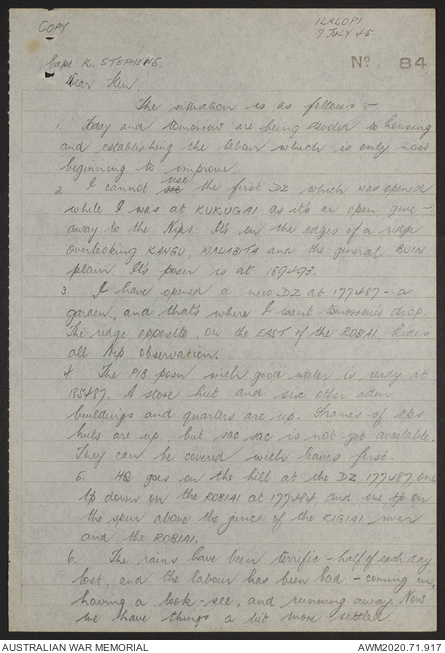 COPY
ILALOPI
7 JULY 45
Capt K. STEPHENS.
No 84
Dear Ken
The situation is as follows -
1. Today and tomorrow are being devoted to housing
and establishing the labour which is only now
beginning to improve.
2. I cannot see use the first DZ which was opened
while I was at KUKUGAI as it's an open give-
away to the Nips. It's on the edges of a ridge
overlooking KANGU, MALABITA and the general BUIN
plain. It's posn is at 189493.
3. I have opened a new DZ at 177487 - a
garden, and that's where I want tomorrow's drop.
The ridge opposite, on the EAST of the ROBIAI, hides
all Nip observation.
4. The PIB posn with good water is ready at
185487. A store hut and six other adm
buildings and quarters are up. Frames of
huts are up, but sac sac is not yet available.
They can be covered with leaves first.
5. HQ goes on the hill at the DZ 177487, one
tp down on the ROBIAI at 177484 and one tp on
the spur above the junc of the KIGIAI river
and the ROBIAI.
6. The rains have been terrific - half of each day
lost, and the labour has been bad - coming in,
having a look-see, and running away. Now
we have things a bit more settled
AUSTRALIAN WAR MEMORIAL
AWM2020.71.917